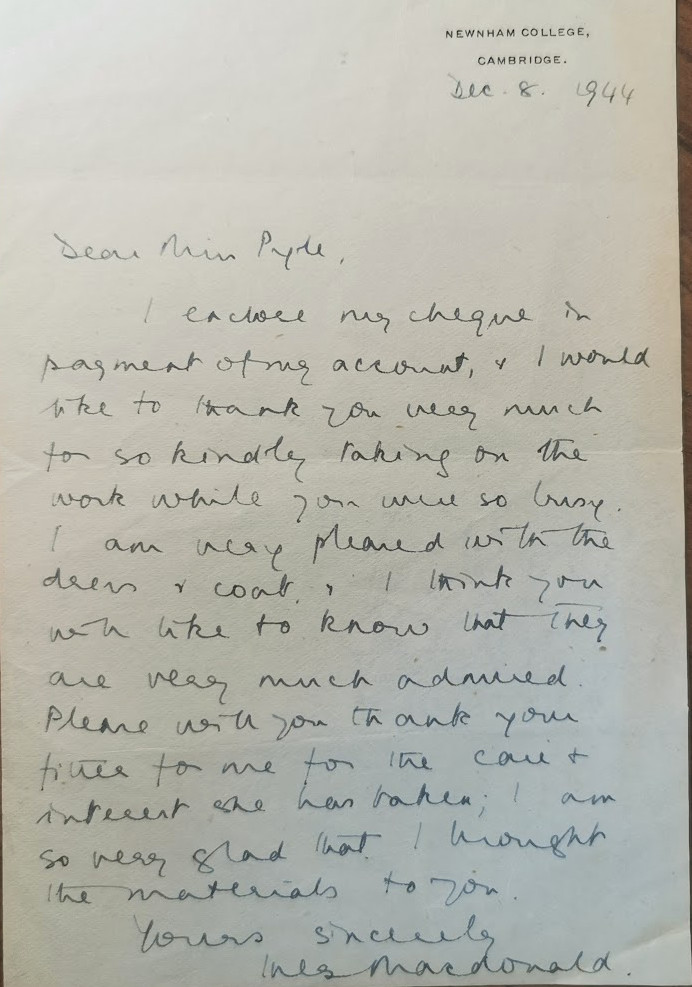 NEWNHAM COLLEGE,
CAMBRIDGE.
Dec. 8. 1944
Dear Miss Pyle,
I enclose my cheque in
payment of my account, & I would
like to thank you very much
for so kindly taking on the
work while you were so busy.
I am very pleased with the
dress & coat, & I think you
will like to know that they
are very much admired.
Please will you thank your
fitter for me for the care &
interest she has taken; I am
so very glad that I brought
the materials to you.
Yours sincerely
Ines Macdonald.